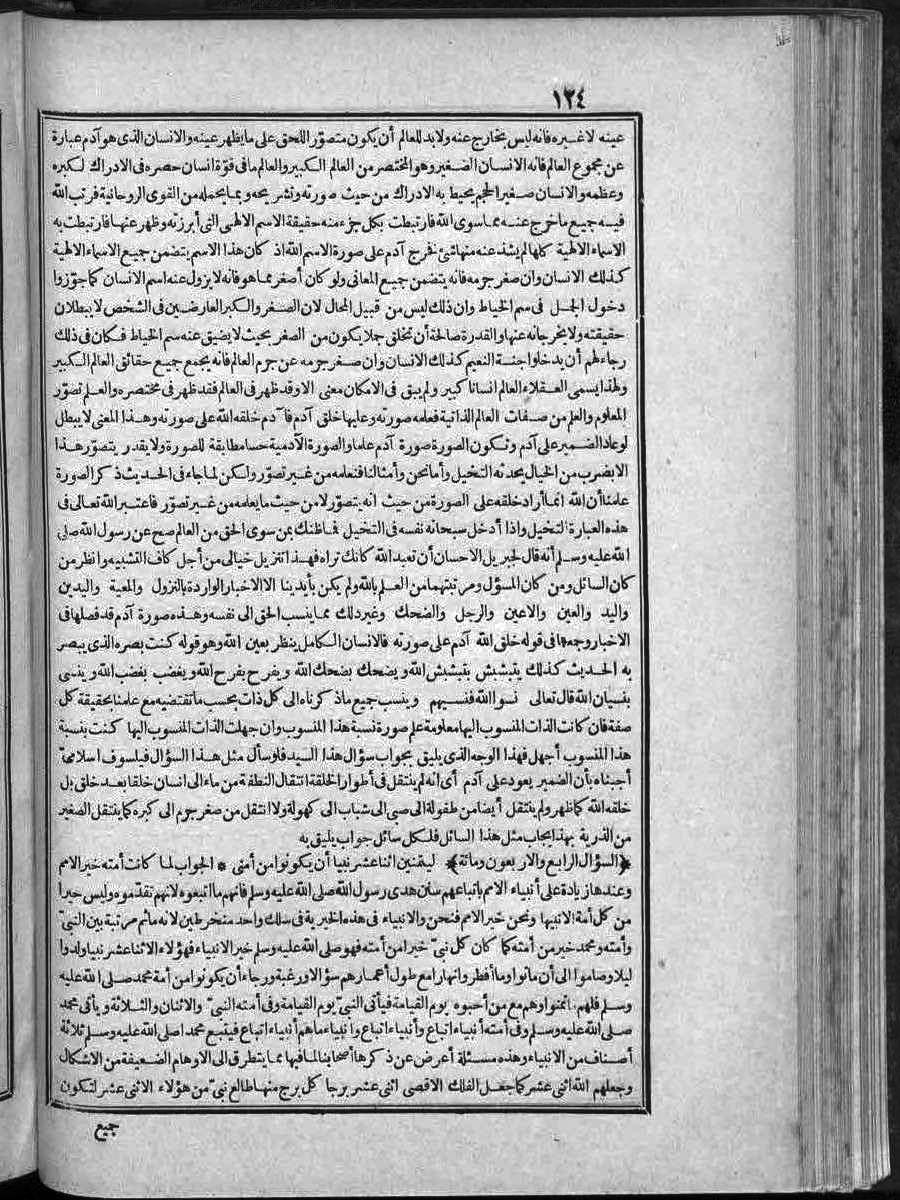 ١٢٤
عينه لا غيره فانه ليس بخارج عنه ولا بد للعالم أن يكون متصوّر اللحق على ما يظهر عينه والانسان الذى هو آدم عبارة
عن مجموع العالم فانه الانسان الصغير وهو المختصر من العالم الكبير والعالم ما فى قوّة انسان حصره فى الادراك لكبره
وعظمه والانسان صغير الحجم يحيط به الادراك من حيث صورته وتشريحه وبما يحمله من القوى الروحانية فرتب الله
فيه جميع ما خرج عنه مما سوى الله فارتبطت بكل جزء منه حقيقة الاسم الالهى التى أبرزته وظهر عنها فارتبطت به
الاسماء الالهية كلها لم يشذ عنه منها شئ فخرج آدم على صورة الاسم الله اذ كان هذا الاسم يتضمن جميع الاسماء الالهية
كذلك الانسان وان صغر جرمه فانه يتضمن جميع المعانى ولو كان أصغر مما هو فانه لا يزول عنه اسم الانسان كما جوّزوا
دخول الجمل فى سم الخياط وان ذلك ليس من قبيل المحال لان الصغر والكبر العارضين فى الشخص لا يبطلان
حقيقته ولا يخرجانه عنها والقدرة صالحة أن تخلق جملا يكون من الصغر بحيث لا يضيق عنه سم الخياط فكان فى ذلك
رجاء لهم أن يدخلوا جنة النعيم كذلك الانسان وان صغر جرمه عن جرم العالم فانه يجمع جميع حقائق العالم الكبير
ولهذا يسمى العقلاء العالم انسانا كبير ولم يبق فى الامكان معنى الا وقد ظهر فى العالم فقد ظهر فى مختصره والعلم تصوّر
المعلوم والعلم من صفات العالم الذاتية فعلمه صورته وعليها خلق آدم فآدم خلقه الله على صورته وهذا المعنى لا يبطل
لو عاد الضمير على آدم وتكون الصورة صورة آدم علما والصورة الآدمية حسا مطابقة للصورة ولا يقدر يتصوّر هذا
الا بضرب من الخيال يحدثه التخيل وأما نحن وأمثالنا فنعلمه من غير تصوّر ولكن لما جاء فى الحديث ذكر الصورة
علمنا أن الله انما أراد خلقه على الصورة من حيث انه يتصوّر لا من حيث ما يعلمه من غير تصوّر فاعتبر الله تعالى فى
هذه العبارة التخيل واذا أدخل سبحانه نفسه فى التخيل فما ظنك بمن سوى الحق من العالم صح عن رسول الله صلى
الله عليه وسلم أنه قال لجبريل الاحسان أن تعبد الله كانك تراه فهذا تنزيل خيالى من أجل كاف التشبيه وانظر من
كان السائل ومن كان المسؤل ومرتبتهما من العلم بالله ولم يكن بأيدينا الا الاخبار الواردة بالنزول والمعية واليدين
واليد والعين والاعين والرجل والضحك وغير ذلك مما ينسب الحق الى نفسه وهذه صورة آدم قد فصلها فى
الاخبار وجمعها فى قوله خلق الله آدم على صورته فالانسان الكامل ينظر بعين الله وهو قوله كنت بصره الذى يبصر
به الحديث كذلك يتبشبش بتبشبش الله ويضحك بضحك الله ويفرح بفرح الله ويغضب بغضب الله وينسى
بنسيان الله قال تعالى نسوا الله فنسيهم وينسب جميع ما ذكرناه الى كل ذات بحسب ما تقتضيه مع علمنا بحقيقة كل
صفة فان كانت الذات المنسوب اليها معلومة علم صورة نسبة هذا المنسوب وان جهلت الذات المنسوب اليها كنت بنسبة
هذا المنسوب أجهل فهذا الوجه الذى يليق بجواب سؤال هذا السيد فلو سأل مثل هذا السؤال فيلسوف اسلامىّ
أجبناه بأن الضمير يعود على آدم أى انه لم ينتقل فى أطوار الخلقة انتقال النطفة من ماء الى انسان خلقا بعد خلق بل
خلقه الله كما ظهر ولم ينتقل أيضا من طفولة الى صبى الى شباب الى كهولة ولا انتقل من صغر جرم الى كبره كما ينتقل الصغير
من الذرية بهذا يجاب مثل هذا السائل فلكل سائل جواب يليق به
﴿السؤال الرابع والاربعون ومائة﴾ ليتمنين اثنا عشر نبيا أن يكونوا من أمتى * الجواب لما كانت أمته خير الامم
وعندها زيادة على أنبياء الامم باتباعهم سنن هدى رسول الله صلى الله عليه وسلم فانهم ما اتبعوه لانهم تقدّموه وليس خيرا
من كل أمة الا نبيها ونحن خير الامم فنحن والانبياء فى هذه الخيرية فى سلك واحد منخرطين لانه ما ثم مرتبة بين النبىّ
وأمته ومحمد خير من أمته كما كان كل نبىّ خيرا من أمته فهو صلى الله عليه وسلم خير الانبياء فهؤلاء الاثنا عشر نبيا ولدوا
ليلا وصاموا الى أن ماتوا وما أفطروا نهارا مع طول أعمارهم سؤالا ورغبة ورجاء أن يكونوا من أمة محمد صلى الله عليه
وسلم فلهم ما تمنوا وهم مع من أحبوه يوم القيامة فيأتى النبىّ يوم القيامة وفى أمته النبىّ والاثنان والثلاثة ويأتى محمد
صلى الله عليه وسلم وفى أمته أنبياء اتباع وأنبياء اتباع وأنبياء ما هم أنبياء اتباع فيتبع محمدا صلى الله عليه وسلم ثلاثة
أصناف من الانبياء وهذه مسئلة أعرض عن ذكرها أصحابنا لما فيها مما يتطرق الى الاوهام الضعيفة من الاشكال
وجعلهم الله اثنى عشر كما جعل الفلك الاقصى اثنى عشر برجا كل برج منها طالع نبىّ من هؤلاء الاثنى عشر لتكون
جميع